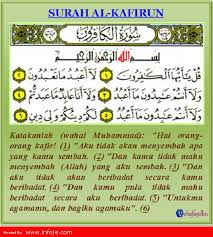 SURAH AL-KAFIRUN
سُورَةُ الْكَافِرُونَ
بِسْمِ اللَّهِ الرَّحْمَٰنِ الرَّحِيمِ
قُلْ يَٰأَيُّهَا الْكَٰفِرُونَ لَا أَعْبُدُ مَا تَعْبُدُونَ
وَلَا أَنتُمْ عَٰبِدُونَ مَا أَعْبُدُ وَلَا أَنَا عَابِدٌ مَّا عَبَدتُّمْ
وَلَا أَنتُمْ عَٰبِدُونَ مَا أَعْبُدُ لَكُمْ دِينُكُمْ وَلِيَ دِينِ
Katakanlah (wahai Muhammad): "Hai orang-
orang kafir! (1) "Aku tidak akan menyembah apa
yang kamu sembah. (2) "Dan kamu tidak mahu
menyembah (Allah) yang aku sembah. (3) "Dan
aku tidak akan beribadat secara kamu
beribadat. (4) "Dan kamu pula tidak mahu
beribadat secara aku beribadat. (5) "Untukmu
agamamu, dan bagiku agamaku". (6)
www.infoje.com